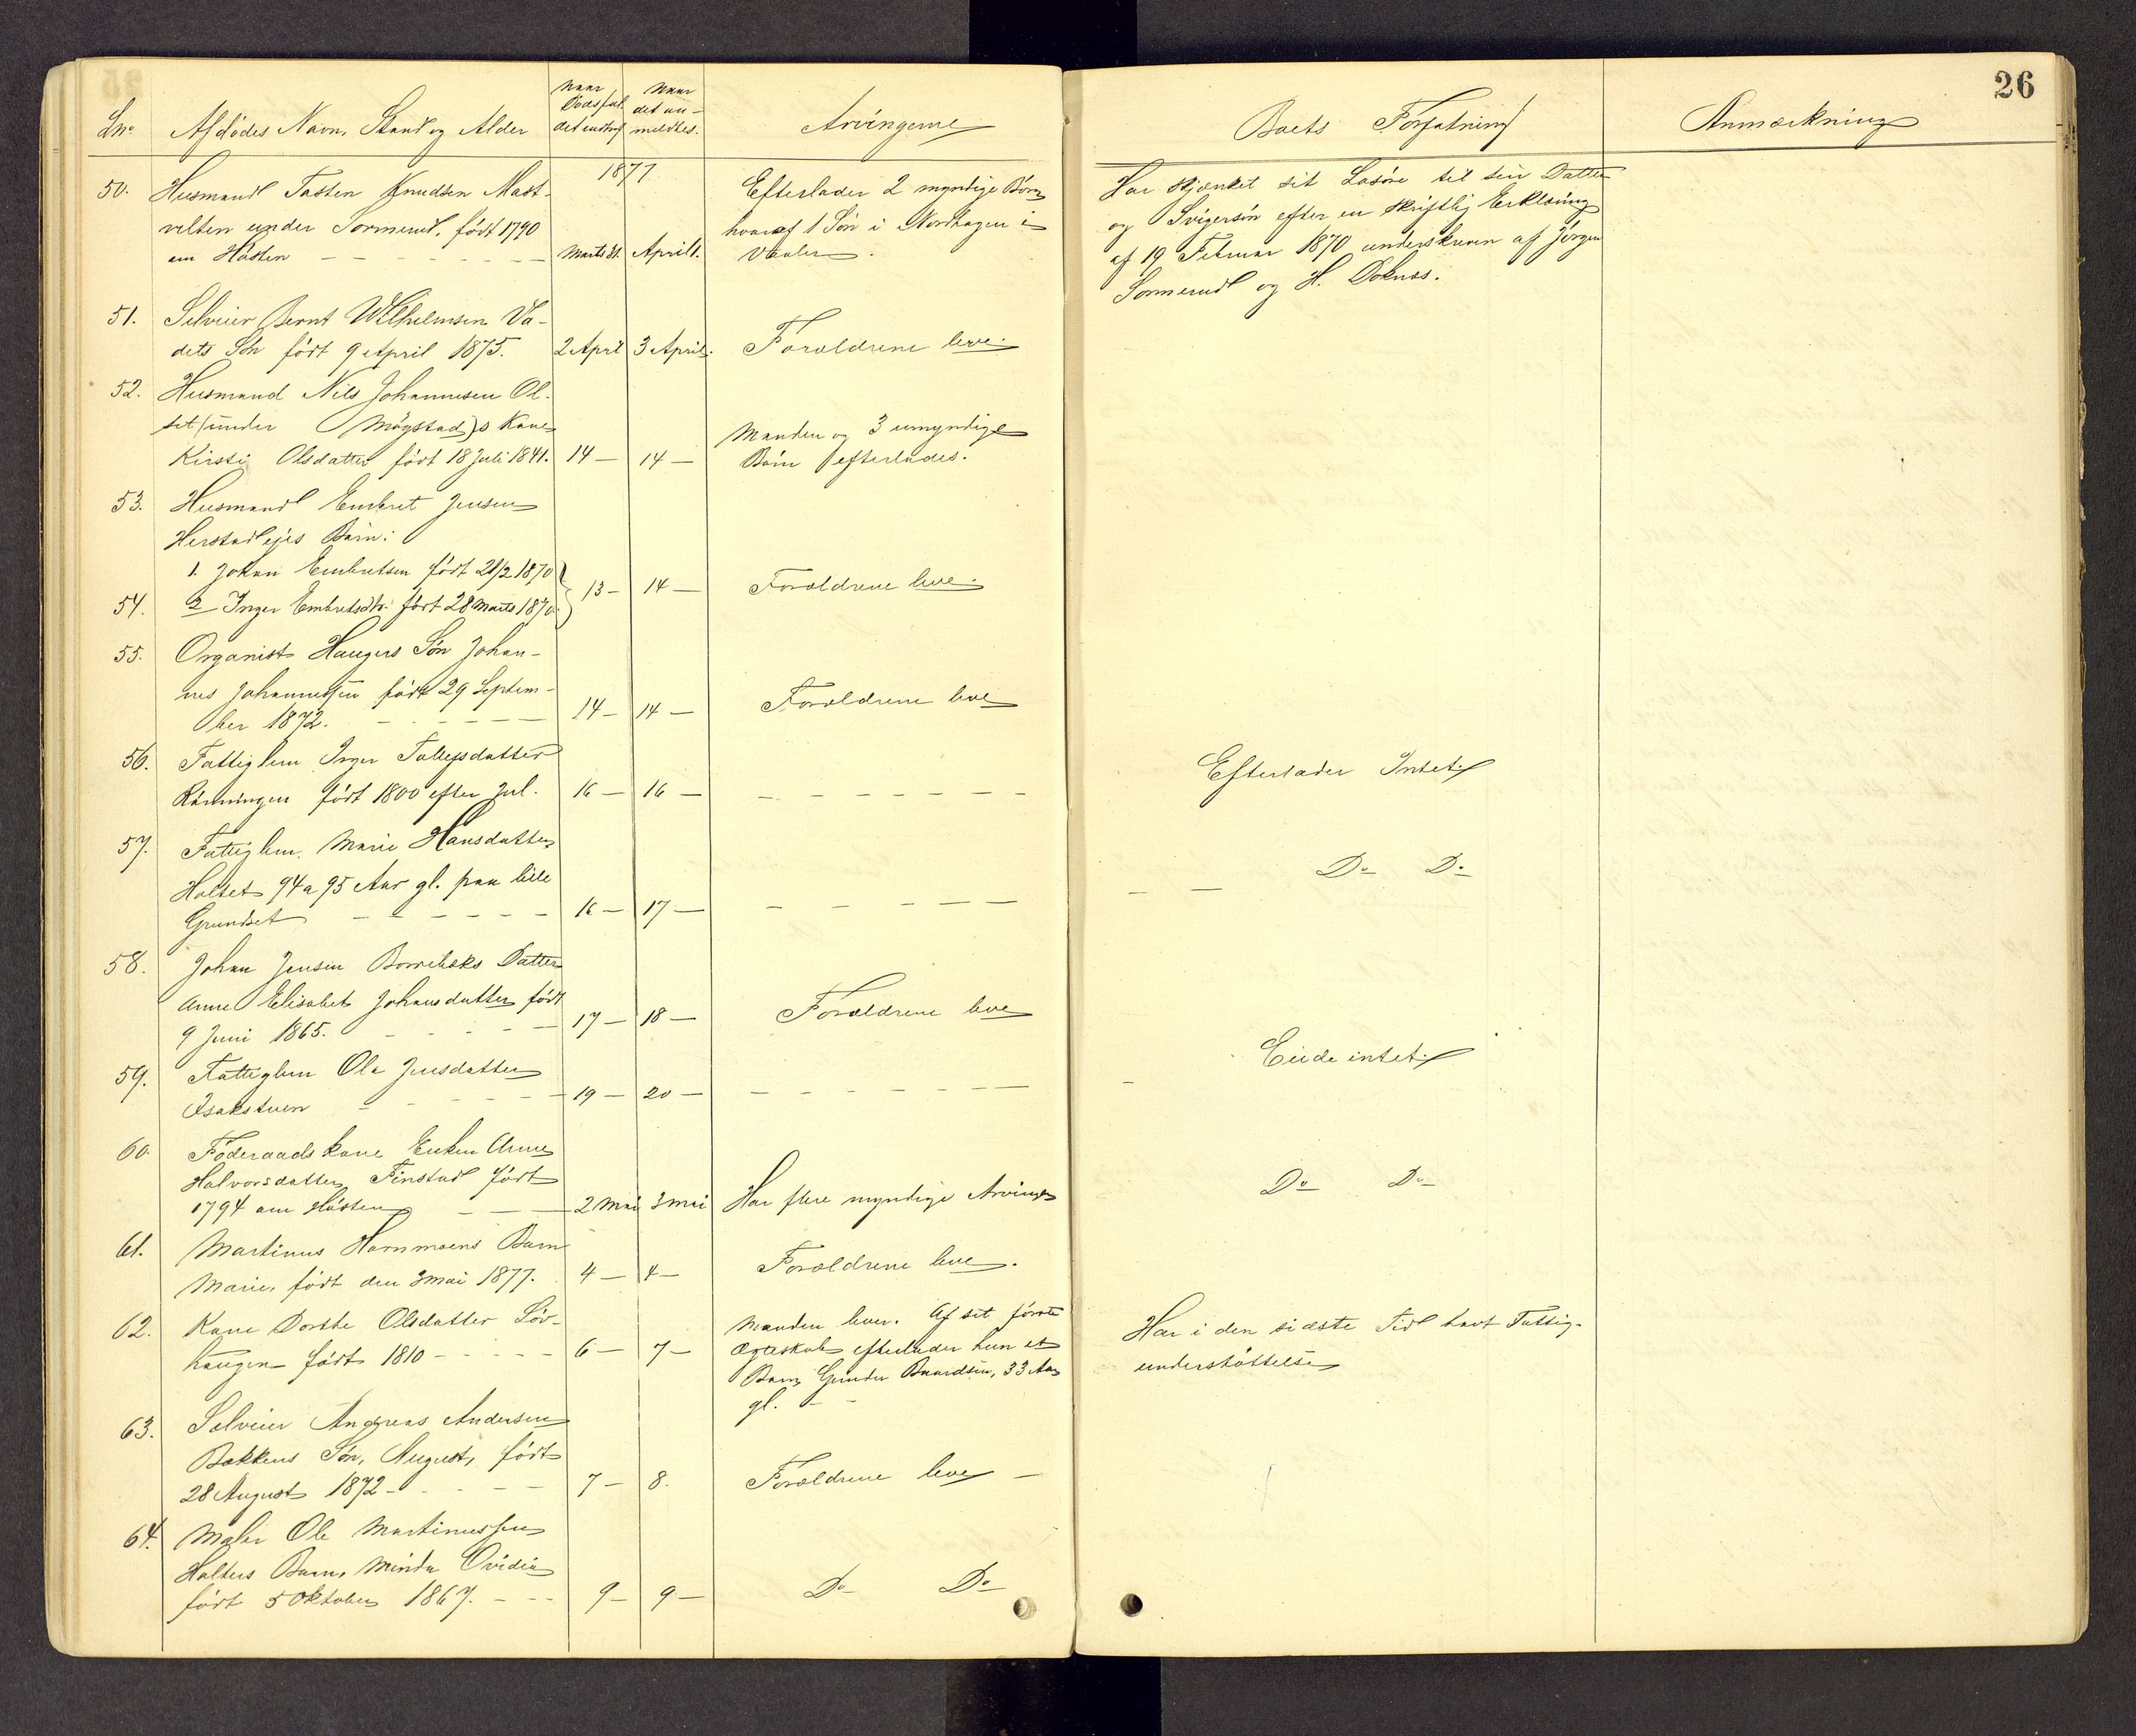 26
Lno. Afdødes Navn, Stand og Alder
Naar Dødsfaldet indtraf
Naar det anmeldtes.
Arvingerne
Boets Forfatning
Anmærkning
1877
50. Husmand Tosten Knudsen Mast-
velten under Sormerud, født 1790
om Høsten — Marts 31. April 1.
Efterlader 2 myndige Børn
hvoraf 1 Søn i Nordhagen i
Vaaler.
Har skjænket sit Løsøre til sin Datter
og Svigersøn efter en skriftlig Erklæring
af 19 Februar 1870 underskreven af Jørgen
Sormerud og H. Doknæs.
51. Selveier Bernt Wilhelmsen Va-
dets Søn født 9 April 1875. 2 April 3 April. Forældrene leve.
52. Husmand Nils Johannesen Ol-
set (under Møystad)s Kone
Kirsti Olsdatter født 18 Juli 1841. 14 — 14 —
Manden og 3 umyndige
Børn efterlades.
53. Husmand Embret Jensen
Herstadlejes Børn:
1. Johan Embretsen født 21/2 1870
54. 2 Inger Embretsdtr. født 28 Marts 1870 13 — 14 — Forældrene leve.
55. Organist Haugers Søn Johan-
nes Johannessen født 29 Septem-
ber 1872. — 14 — 14 — Forældrene leve
56. Fattiglem Inger Tollefsdatter
Rønningen født 1800 efter Jul. 16 — 16 — Efterlader Intet
57. Fattiglem Marie Hansdatter
Holtet 94 a 95 Aar gl. paa lille
Grundset — 16 — 17 — Do Do
58. Johan Jensen Borrebæks Datter
Anne Elisabet Johansdatter født
9 Juni 1865. — 17 — 18 — Forældrene leve
59. Fattiglem Ole Jensdatter
Isakstuen — 19 — 20 — Eiede intet
60. Føderaadskone Enken Anne
Halvorsdatter Finstad født
1794 om Høsten — 2 Mai 3 Mai Har flere myndige Arvinger Do Do
61. Martinus Hornmoens Barn
Marie, født den 3 Mai 1877. 4 — 4 — Forældrene leve.
62. Kone Dorthe Olsdatter Løv-
haugen født 1810 — 6 — 7 —
Manden lever. Af sit første
Ægteskab efterlader hun et
Barn, Gunder Baardsen, 33 Aar
gl.
Har i den sidste Tid havt Fattig-
understøttelse
63. Selveier Andreas Andersen
Bakkens Søn, August, født
28 August 1872 — 7 — 8. Forældrene leve —
64. Maler Ole Martinussen
Holtets Barn, Minda Ovidia
født 5 Oktober 1867. — 9 — 9 — Do Do